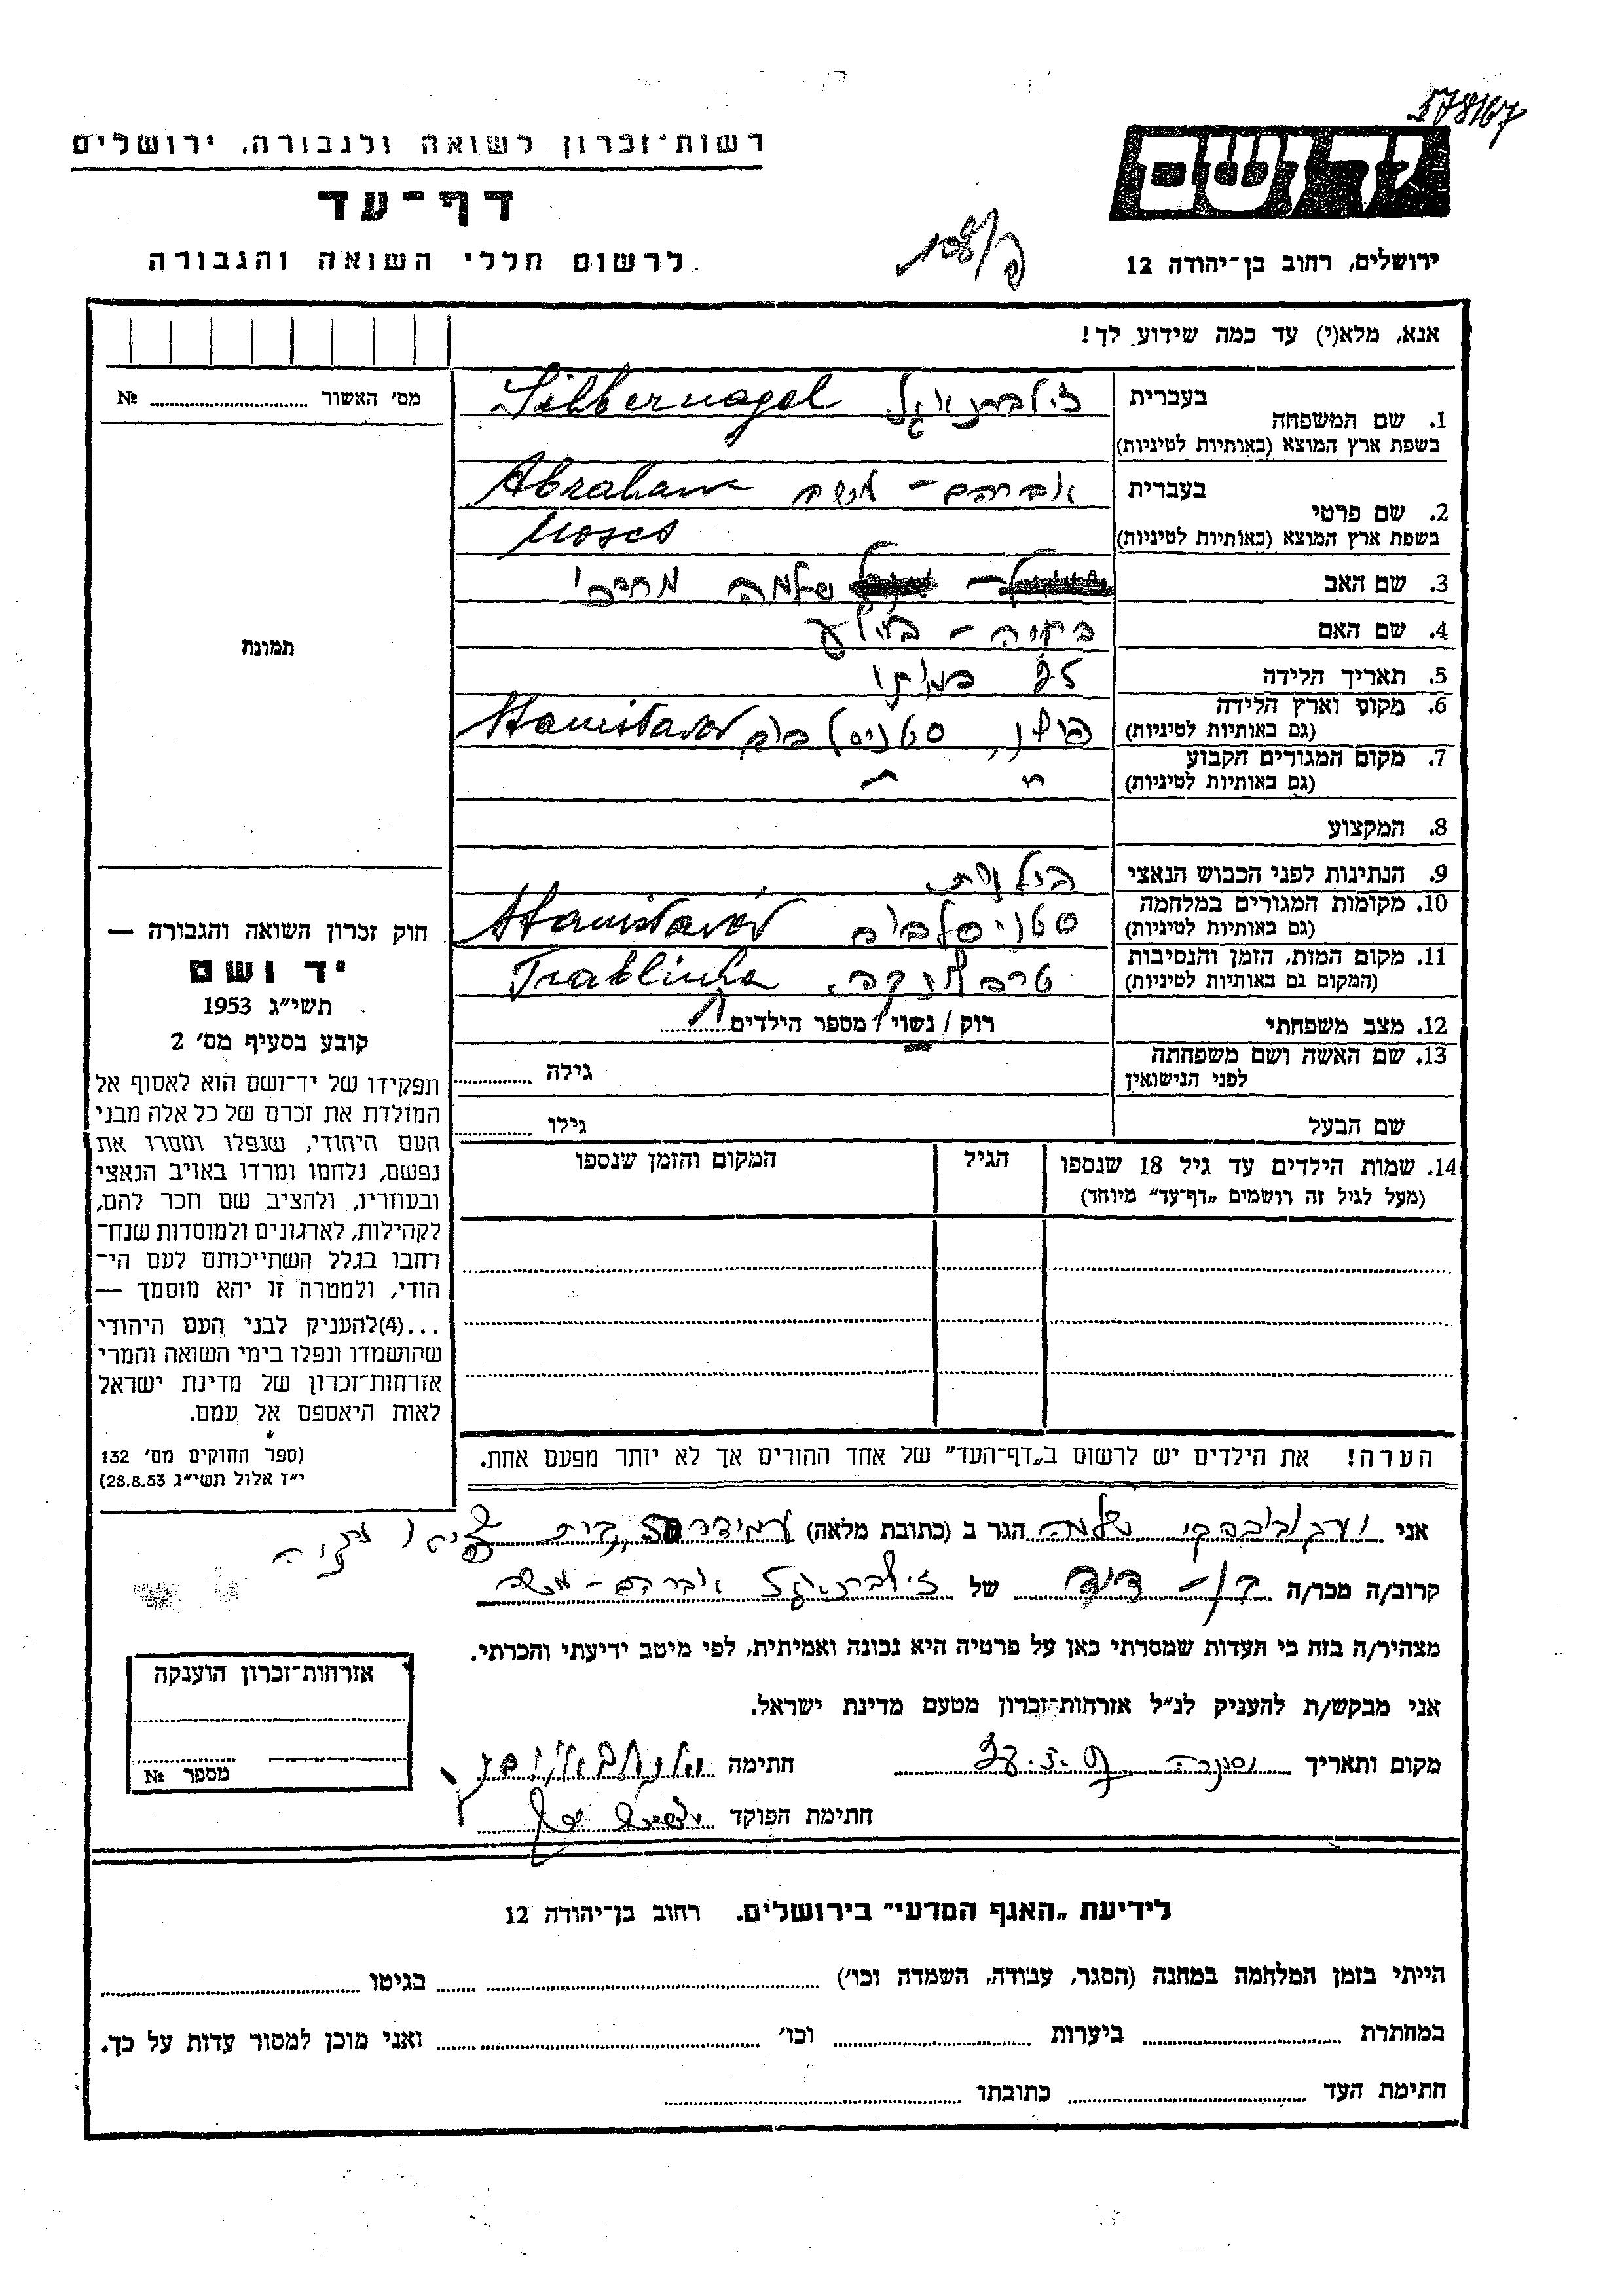 178167
רשות־זכרון לשואה ולגבורה, ירושלים
דף־עד
לרשום חללי השואה והגבורה
ידושם
ירושלים, רחוב בן־יהודה 12
אנא, מלא(י) עד כמה שידוע לך!
מס׳ האשור № 
תמונה
1. שם המשפחה
בעברית זילברנאגל Silbernagel
בשפת ארץ המוצא (באותיות לטיניות)
2. שם פרטי
בעברית אברהם – משה Abraham
בשפת ארץ המוצא (באותיות לטיניות) Moses
3. שם האב שלמה מרדכי
4. שם האם
5. תאריך הלידה
6. מקום וארץ הלידה פולין, סטניסלבוב Stanisławów
(גם באותיות לטיניות)
7. מקום המגורים הקבוע " "
(גם באותיות לטיניות)
8. המקצוע
9. הנתינות לפני הכבוש הנאצי פולנית
10. מקומות המגורים במלחמה סטניסלבוב Stanisławów
(גם באותיות לטיניות)
11. מקום המות, הזמן והנסיבות טרבלינקה Treblinka
(המקום גם באותיות לטיניות)
12. מצב משפחתי רוק / נשוי / מספר הילדים
13. שם האשה ושם משפחתה גילה
לפני הנישואין
שם הבעל גילו
14. שמות הילדים עד גיל 18 שנספו הגיל המקום והזמן שנספו
(מעל לגיל זה רושמים „דף־עד״ מיוחד)
הערה! את הילדים יש לרשום ב„דף־העד״ של אחד ההורים אך לא יותר מפעם אחת.
חוק זכרון השואה והגבורה —
יד ושם
תשי״ג 1953
קובע בסעיף מס׳ 2
תפקידו של יד־ושם הוא לאסוף אל
המולדת את זכרם של כל אלה מבני
העם היהודי, שנפלו ומסרו את
נפשם, נלחמו ומרדו באויב הנאצי
ובעוזריו, ולהציב שם וזכר להם,
לקהילות, לארגונים ולמוסדות שנח־
רחבו בגלל השתייכותם לעם הי־
הודי, ולמטרה זו יהא מוסמך —
...(4)להעניק לבני העם היהודי
שהושמדו ונפלו בימי השואה והמרי
אזרחות־זכרון של מדינת ישראל
לאות היאספם אל עמם.
(ספר החוקים מס׳ 132
י״ד אלול תשי״ג 28.8.53)
אני שלמה הגר ב (כתובת מלאה)
קרוב/ה מכר/ה בן – דוד של זילברנאגל אברהם – משה
מצהיר/ה בזה כי העדות שמסרתי כאן על פרטיה היא נכונה ואמיתית, לפי מיטב ידיעתי והכרתי.
אני מבקש/ת להעניק לנ״ל אזרחות־זכרון מטעם מדינת ישראל.
מקום ותאריך חתימה
חתימת הפוקד
אזרחות־זכרון הוענקה
מספר №
לידיעת „האגף המדעי״ בירושלים. רחוב בן־יהודה 12
הייתי בזמן המלחמה במחנה (הסגר, עבודה, השמדה וכו׳) בגיטו
במחתרת ביערות וכו׳ ואני מוכן למסור עדות על כך.
חתימת העד כתובתו